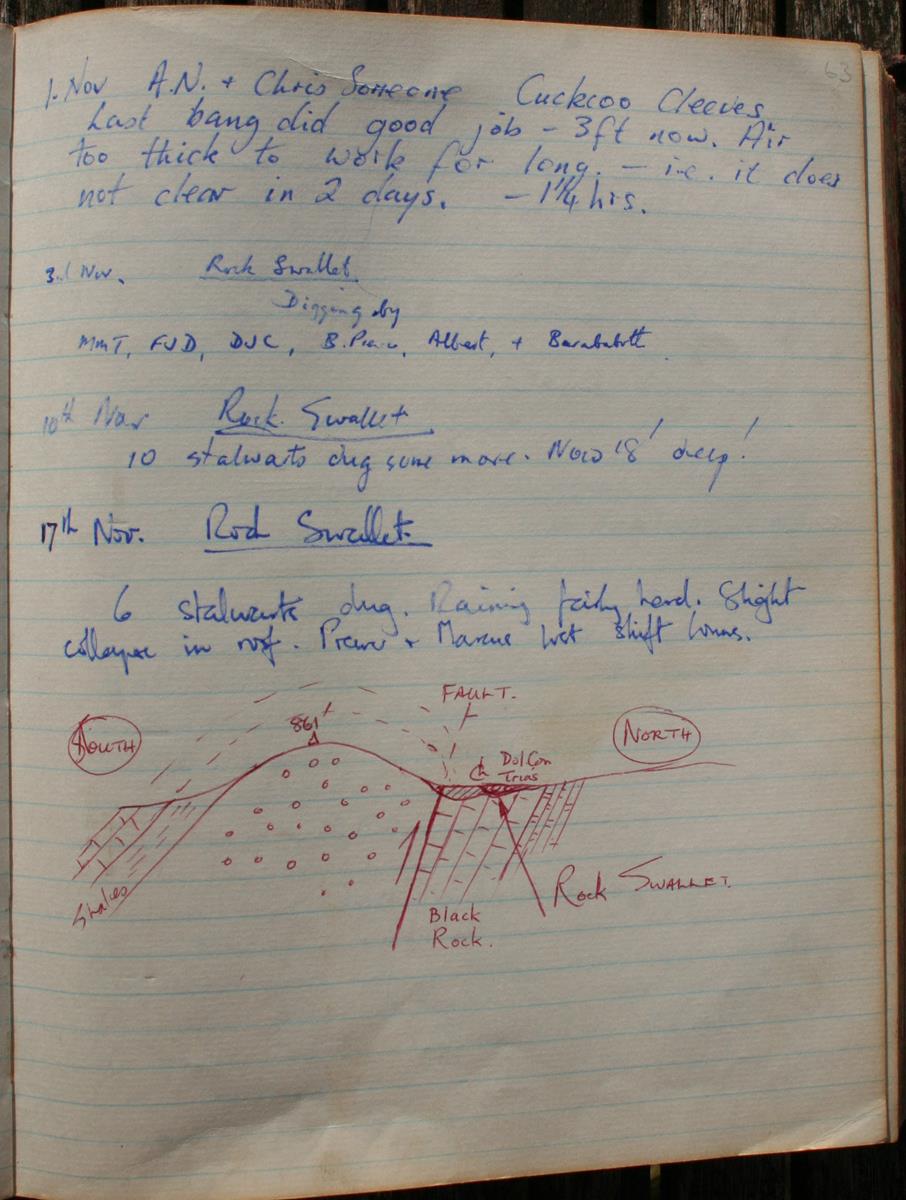 63
1. Nov A.N. + Chris Someone Cuckoo Cleeves
Last bang did good job - 3ft now. Air
too thick to work for long. - i.e. it does
not clear in 2 days. - 1 1/4 hrs.
3rd Nov. Rock Swallet
Digging by
MMT, FJD, DJC, B. Albert, +
10th Nov Rock Swallet
10 stalwarts dug some more. Now 18' deep!
17th Nov. Rock Swallet
6 stalwarts dug. Raining fairly hard. Slight
collapse in roof. + lost shift
FAULT.
861'
SOUTH
NORTH
Dol Con
Trias
Shales
Rock SWALLET.
Black
Rock.